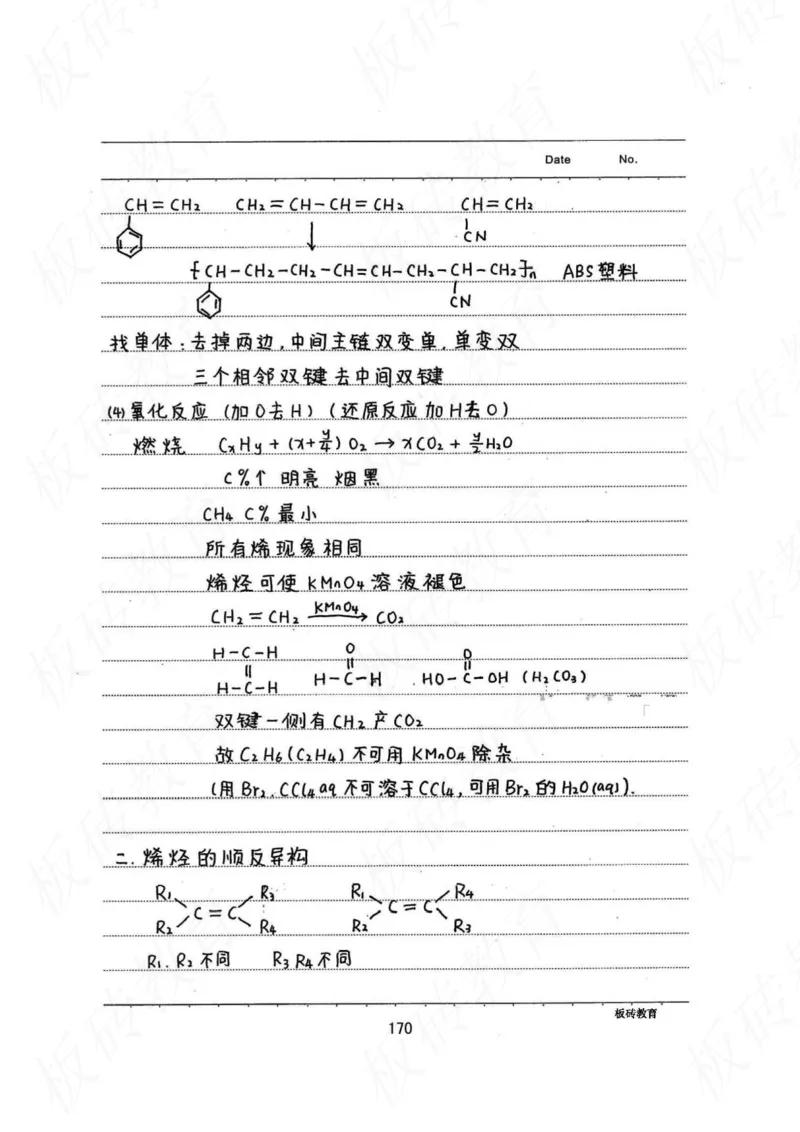 Date No.
CH=CH₂ CH₂=CH-CH=CH₂ CH=CH₂
CN
[CH-CH₂-CH₂-CH=CH-CH₂-CH-CH₂]n ABS塑料
CN
找单体:去掉两边,中间主链双变单,单变双
三个相邻双键去中间双键
(4)氧化反应 (加O去H) (还原反应加H去O)
燃烧 CxHy+(x+y/4)O₂→xCO₂+y/2H₂O
C%↑ 明亮 烟黑
CH₄ C%最小
所有烯现象相同
烯烃可使KMnO₄溶液褪色
CH₂=CH₂ KMnO₄→ CO₂
H-C-H O O
H-C-H H-C-H HO-C-OH (H₂CO₃)
双键一侧有CH₂产CO₂
故C₂H₆(C₂H₄)不可用KMnO₄除杂
(用Br₂.CCl₄aq不可溶于CCl₄,可用Br₂的H₂O(aq)).
二.烯烃的顺反异构
R₁ R₃ R₁ R₄
C=C C=C
R₂ R₄ R₂ R₃
R₁.R₂不同 R₃R₄不同
板砖教育
170